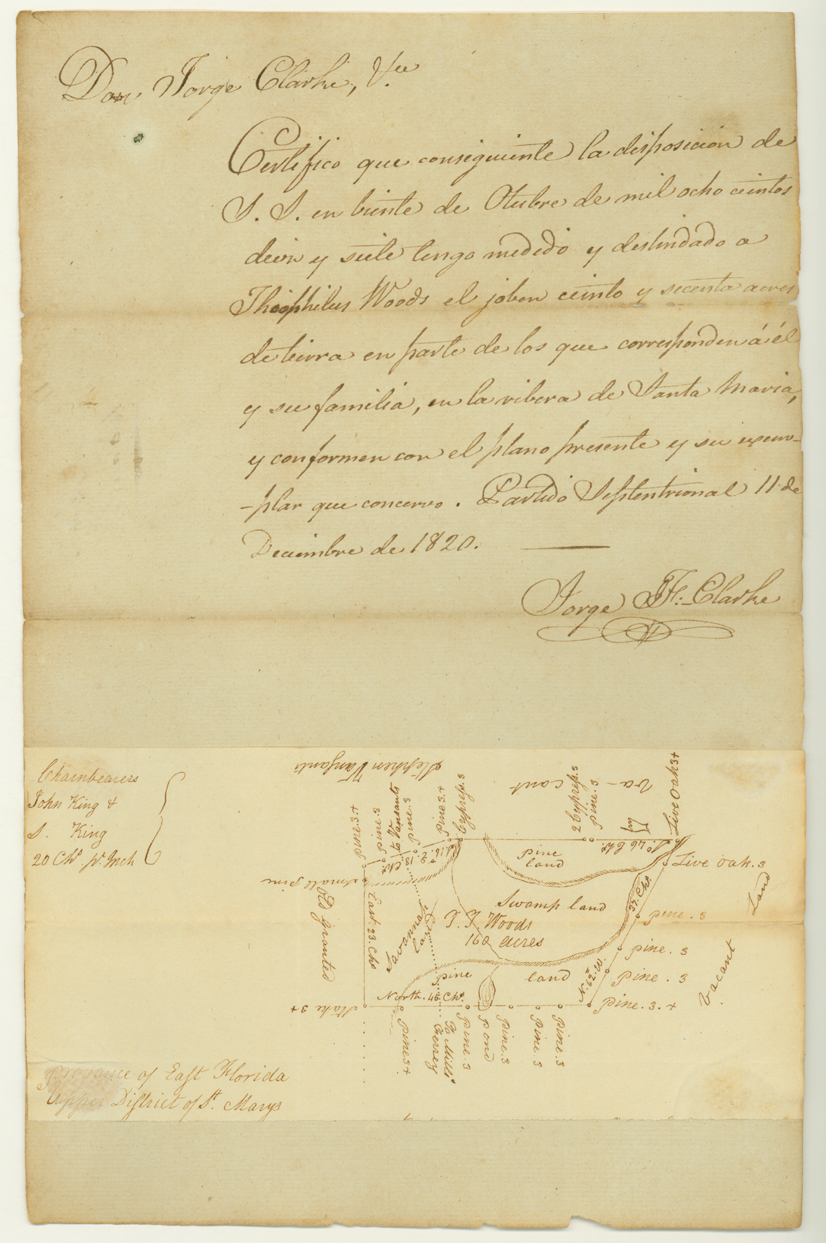 Don Jorge Clarke, Vce
Certifico que consiguiente la disposicion de
S. S. en biente de Otubre de mil ocho cientos
diecin y siete tengo medido y deslindado a
Theophilus Woods el joben ciento y secenta acres
de tierra en parte de los que corresponden á él
y su familia, en la ribera de Santa Maria,
y conformen con el plano presente y su exem-
-plar que concervo. Partido Septentrional 11 de
Diciembre de 1820.
Jorge J. F. Clarke
Chainbearers
John King &
S. King
20 Chs pr Inch
Stephen Vanzants
va-cant
Pine 3+
Pine 3
to Vanzants
Pine 3
Pine 3+
Cypress 3
2 Cypress 3
Pine 3
Live Oak 3+
Pine land
46 Chs
Live Oak. 3
Small pine
Old granted
East 23 Chs
Savanna
Swamp land
37 Chs
T. Woods
160 acres
Pine. 3
Pine. 3
Pine. 3
Pine. 3. +
Vacant Land
Pine land
North. 48 Chs
Stake 3+
Pine 3+
To Mills
Pine. 3
Pond
Pine. 3
Pine. 3
Pine. 3
Province of East Florida
Upper District of St. Marys